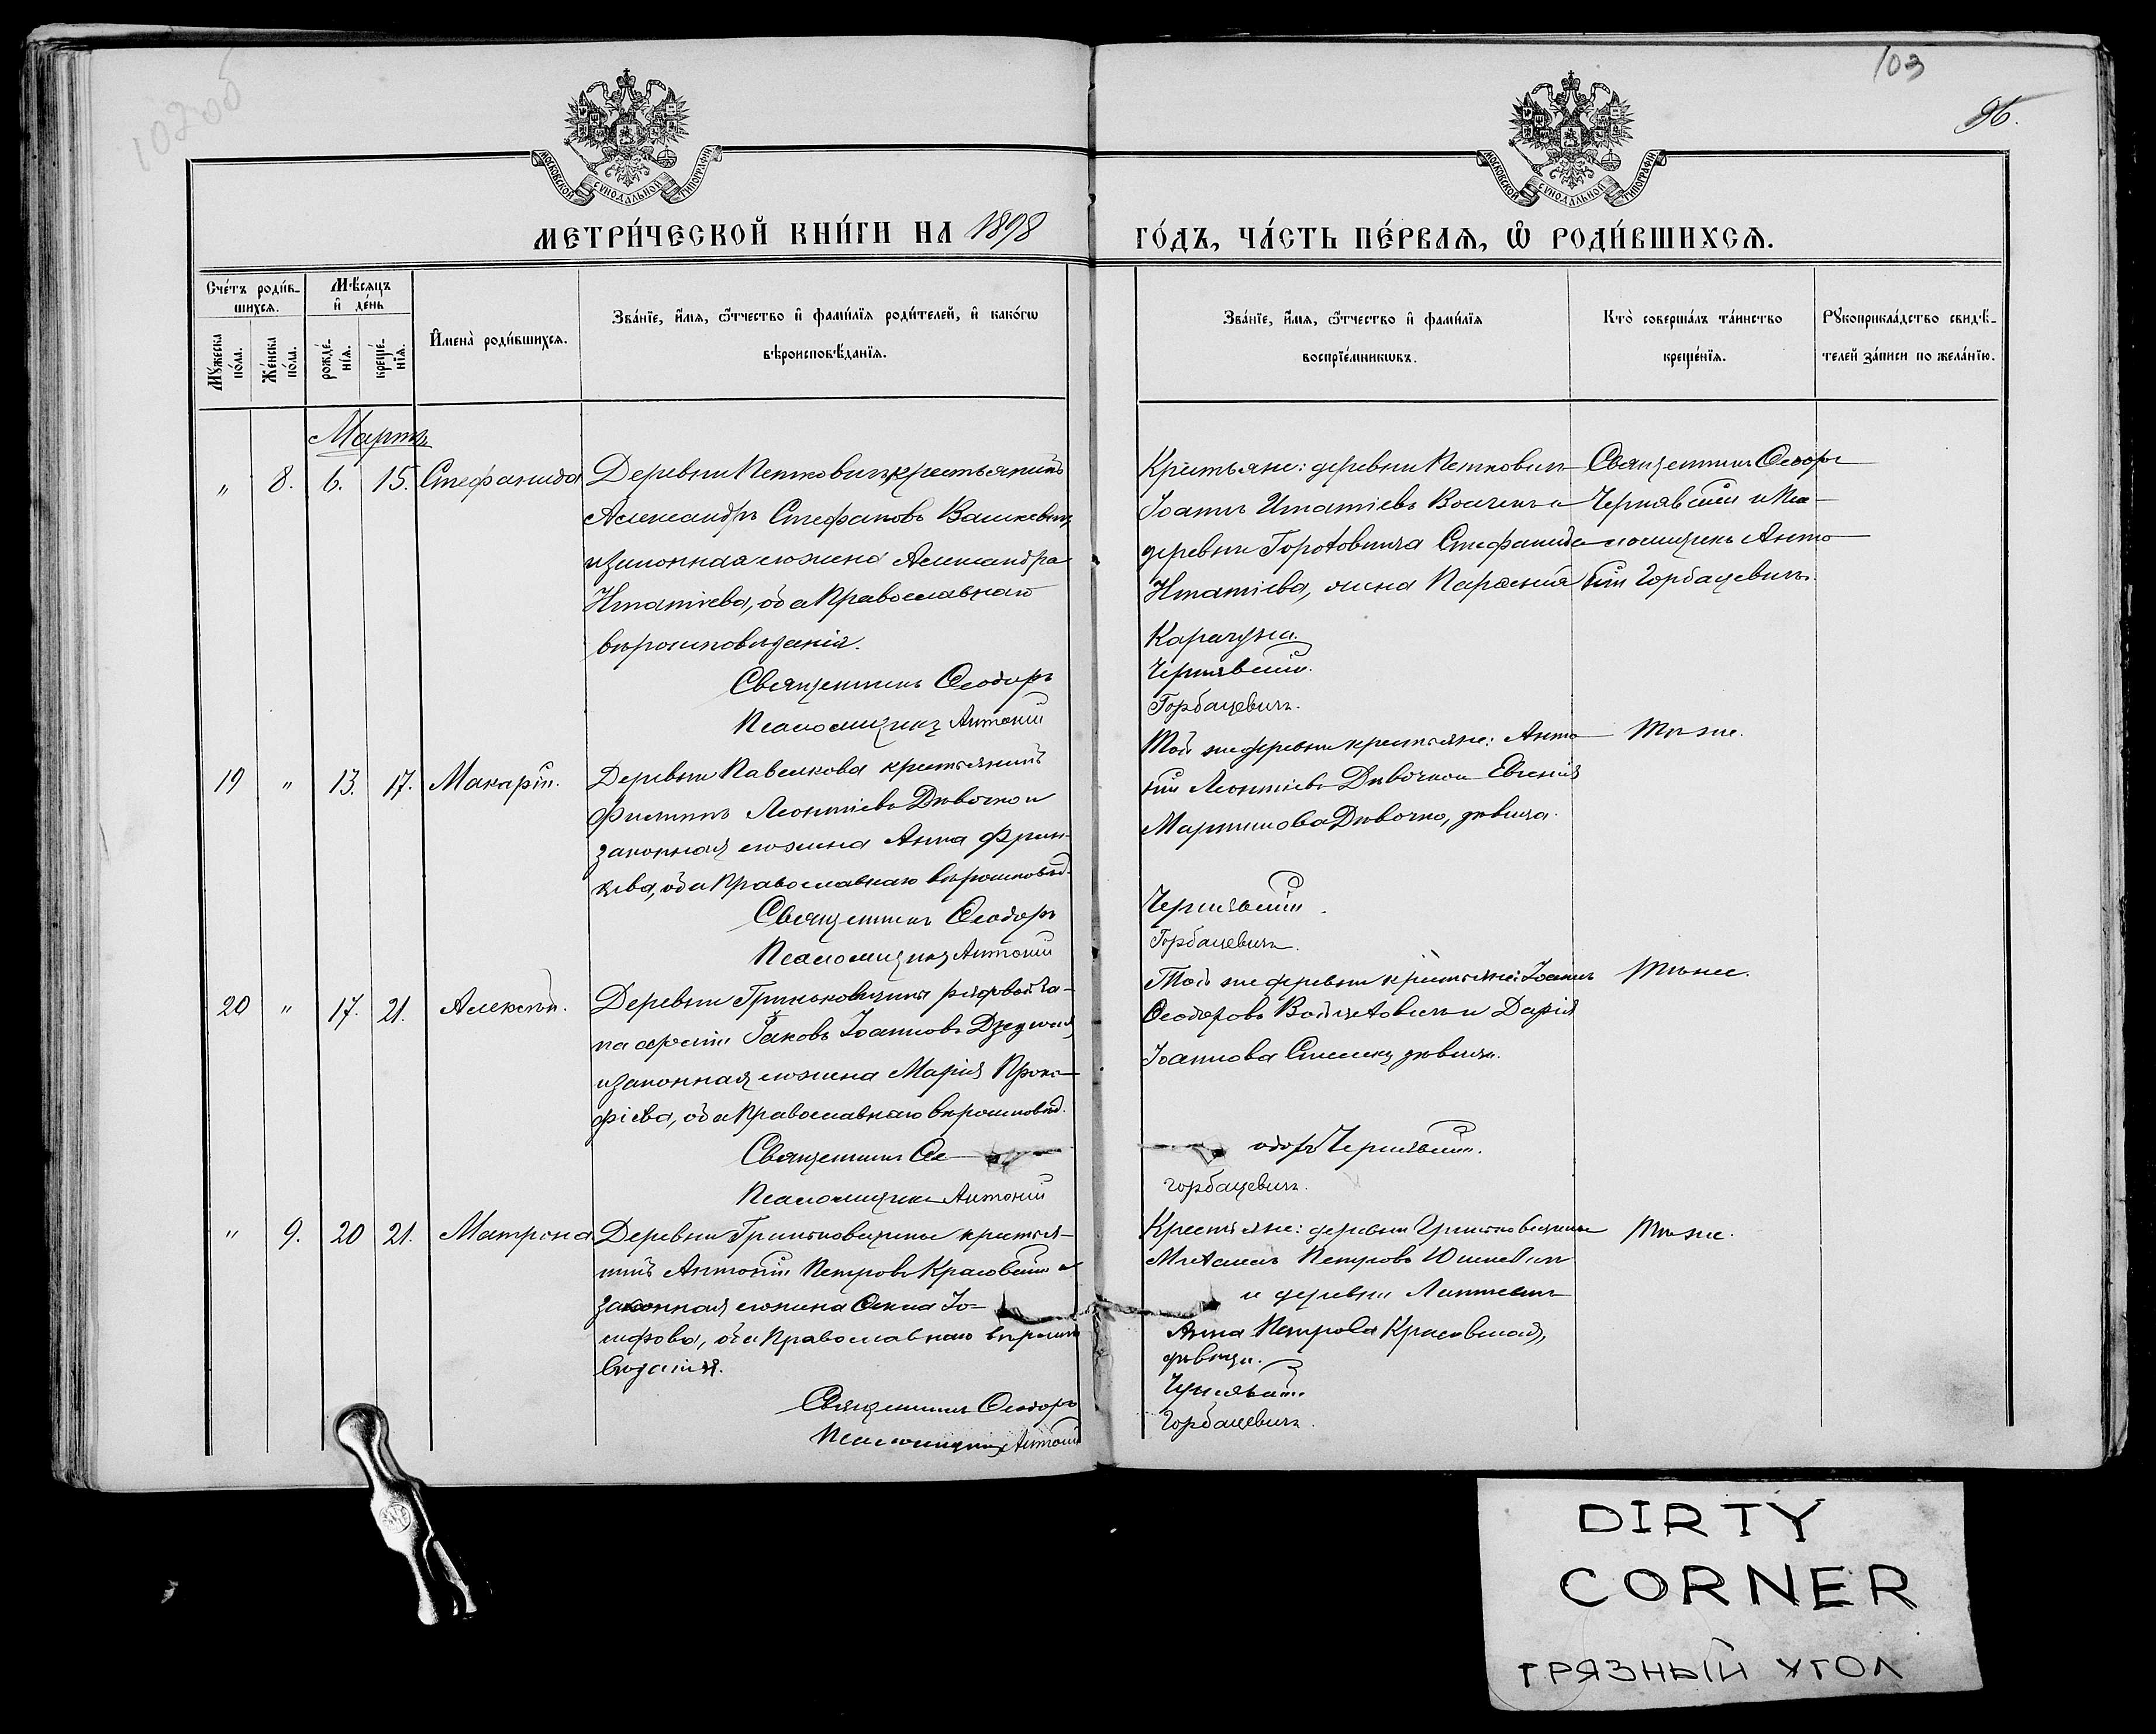 103
96.
МОСКОВСКОЙ СУНОДАЛЬНОЙ ТИПОГРАФІИ
МОСКОВСКОЙ СУНОДАЛЬНОЙ ТИПОГРАФІИ
МЕТРИ́ЧЕСКОЙ КНИ́ГИ НА 1898
ГО́ДЪ, ЧА́СТЬ ПЕ́РВАѦ, Ѡ҆ РОДИ́ВШИХСѦ.
Сче́тъ роди́в-
шихсѧ.
Мѣ́сѧцъ
и҆ де́нь
Мꙋ́жеска
по́ла.
Же́нска
по́ла.
рожде́-
нїѧ.
креще́-
нїѧ.
И҆мена̀ роди́вшихсѧ.
Зва́нїе, и҆́мѧ, ѻ҆́тчество и҆ фами́лїѧ роди́телей, и҆ како́гѡ
вѣроисповѣ́данїѧ.
Зва́нїе, и҆́мѧ, ѻ҆́тчество и҆ фами́лїѧ
воспрїе́мникѡвъ.
Кто̀ соверша́лъ та́инство
креще́нїѧ.
Рꙋкоприкла́дство свидѣ́-
телей за́писи по жела́нїю.
Мартъ
" 8. 6. 15. Стефанида
Деревни Петковичъ крестьянинъ
Александръ Стефановъ Вашкевичъ
и законная его жена Александра
Игнатіева, оба Православнаго
вѣроисповѣданія.
Священникъ Ѳеодоръ
Псаломщикъ Антоній
Крестьяне: деревни Петковичъ
Іоаннъ Игнатіевъ и
деревни Стефанида
Игнатіева, жена Парѳенія
Карачуна.
Чернявскій.
Горбацевичъ.
Священникъ Ѳеодоръ
Чернявскій и Пса-
ломщикъ Анто-
ній Горбацевичъ.
19 " 13. 17. Макарій.
Деревни Павелкова крестьянинъ
Филиппъ Леонтіевъ Дѣвочко и
законная его жена Анна
оба Православнаго вѣроисповѣд.
Священникъ Ѳеодоръ
Псаломщикъ Антоній
Той же деревни крестьяне: Анто-
ній Леонтіевъ Дѣвочко и Евгенія
Мартинова Дѣвочко, дѣвица.
Чернявскій.
Горбацевичъ.
Тѣ же.
20 " 17. 21. Алексѣй.
Деревни Гриньковщины рядовой за-
Іаковъ Іоанновъ
и законная его жена Марія Проко-
фіева, оба Православнаго вѣроисповѣд.
Священникъ Ѳе
Псаломщикъ Антоній
Той же деревни крестьяне: Іоаннъ
Ѳеодоровъ и Дарія
Іоаннова дѣвица.
одоръ Чернявскій.
Горбацевичъ.
Тѣ же.
" 9. 20 21. Матрона
Деревни Гриньковщины крестья-
нинъ Антоній Петровъ Красовскій и
законная его жена Анна Іо-
сифова, оба Православнаго вѣроиспо
вѣданія.
Священникъ Ѳеодоръ
Псаломщикъ Антоній
Крестьяне: деревни Гриньковщины
Михаилъ Петровъ Юшкевичъ
и деревни
Анна Петрова Красовская,
дѣвица.
Чернявскій
Горбацевичъ.
Тѣ же.
DIRTY
CORNER
ГРЯЗНЫЙ УГОЛ